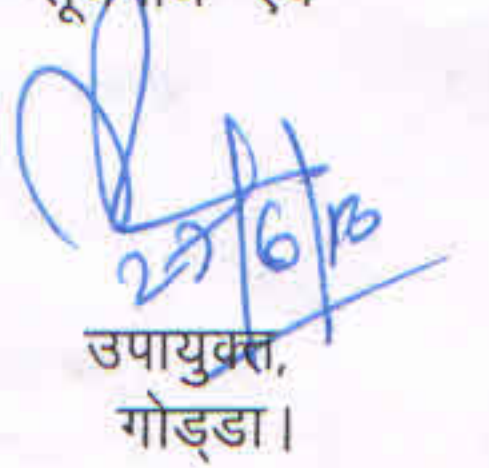 27/6/13
उपायुक्त,
गोड्डा।